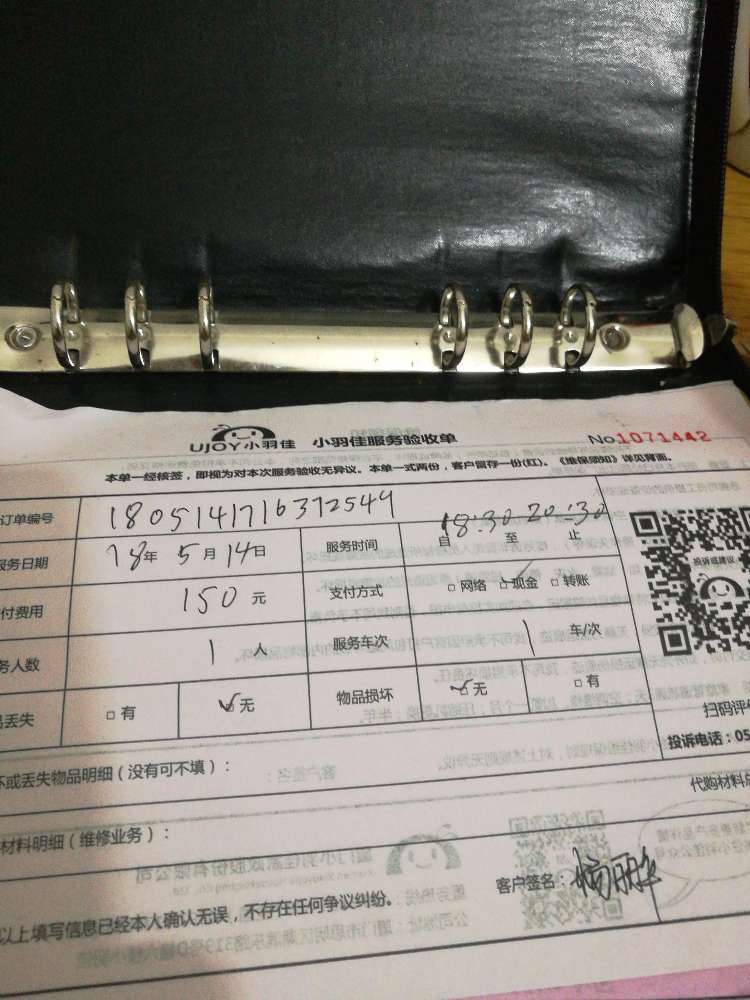 UJOY小羽佳 小羽佳服务验收单 No1071442
本单一经核签，即视为对本次服务验收无异议。本单一式两份，客户留存一份(红)。《维保须知》详见背面。
订单编号 1805141716372549
服务日期 18年 5月14日 服务时间 18:30 20:30 自 至 止
付费用 150元 支付方式 □网络 ☑现金 □转账
务人数 1人 服务车次 1 车/次
丢失 □有 ☑无 物品损坏 ☑无 □有
投诉或建议
扫码评
投诉电话：05
坏或丢失物品明细（没有可不填）：
代购材料总
材料明细（维修业务）：
客户签名：
以上填写信息已经本人确认无误，不存在任何争议纠纷。